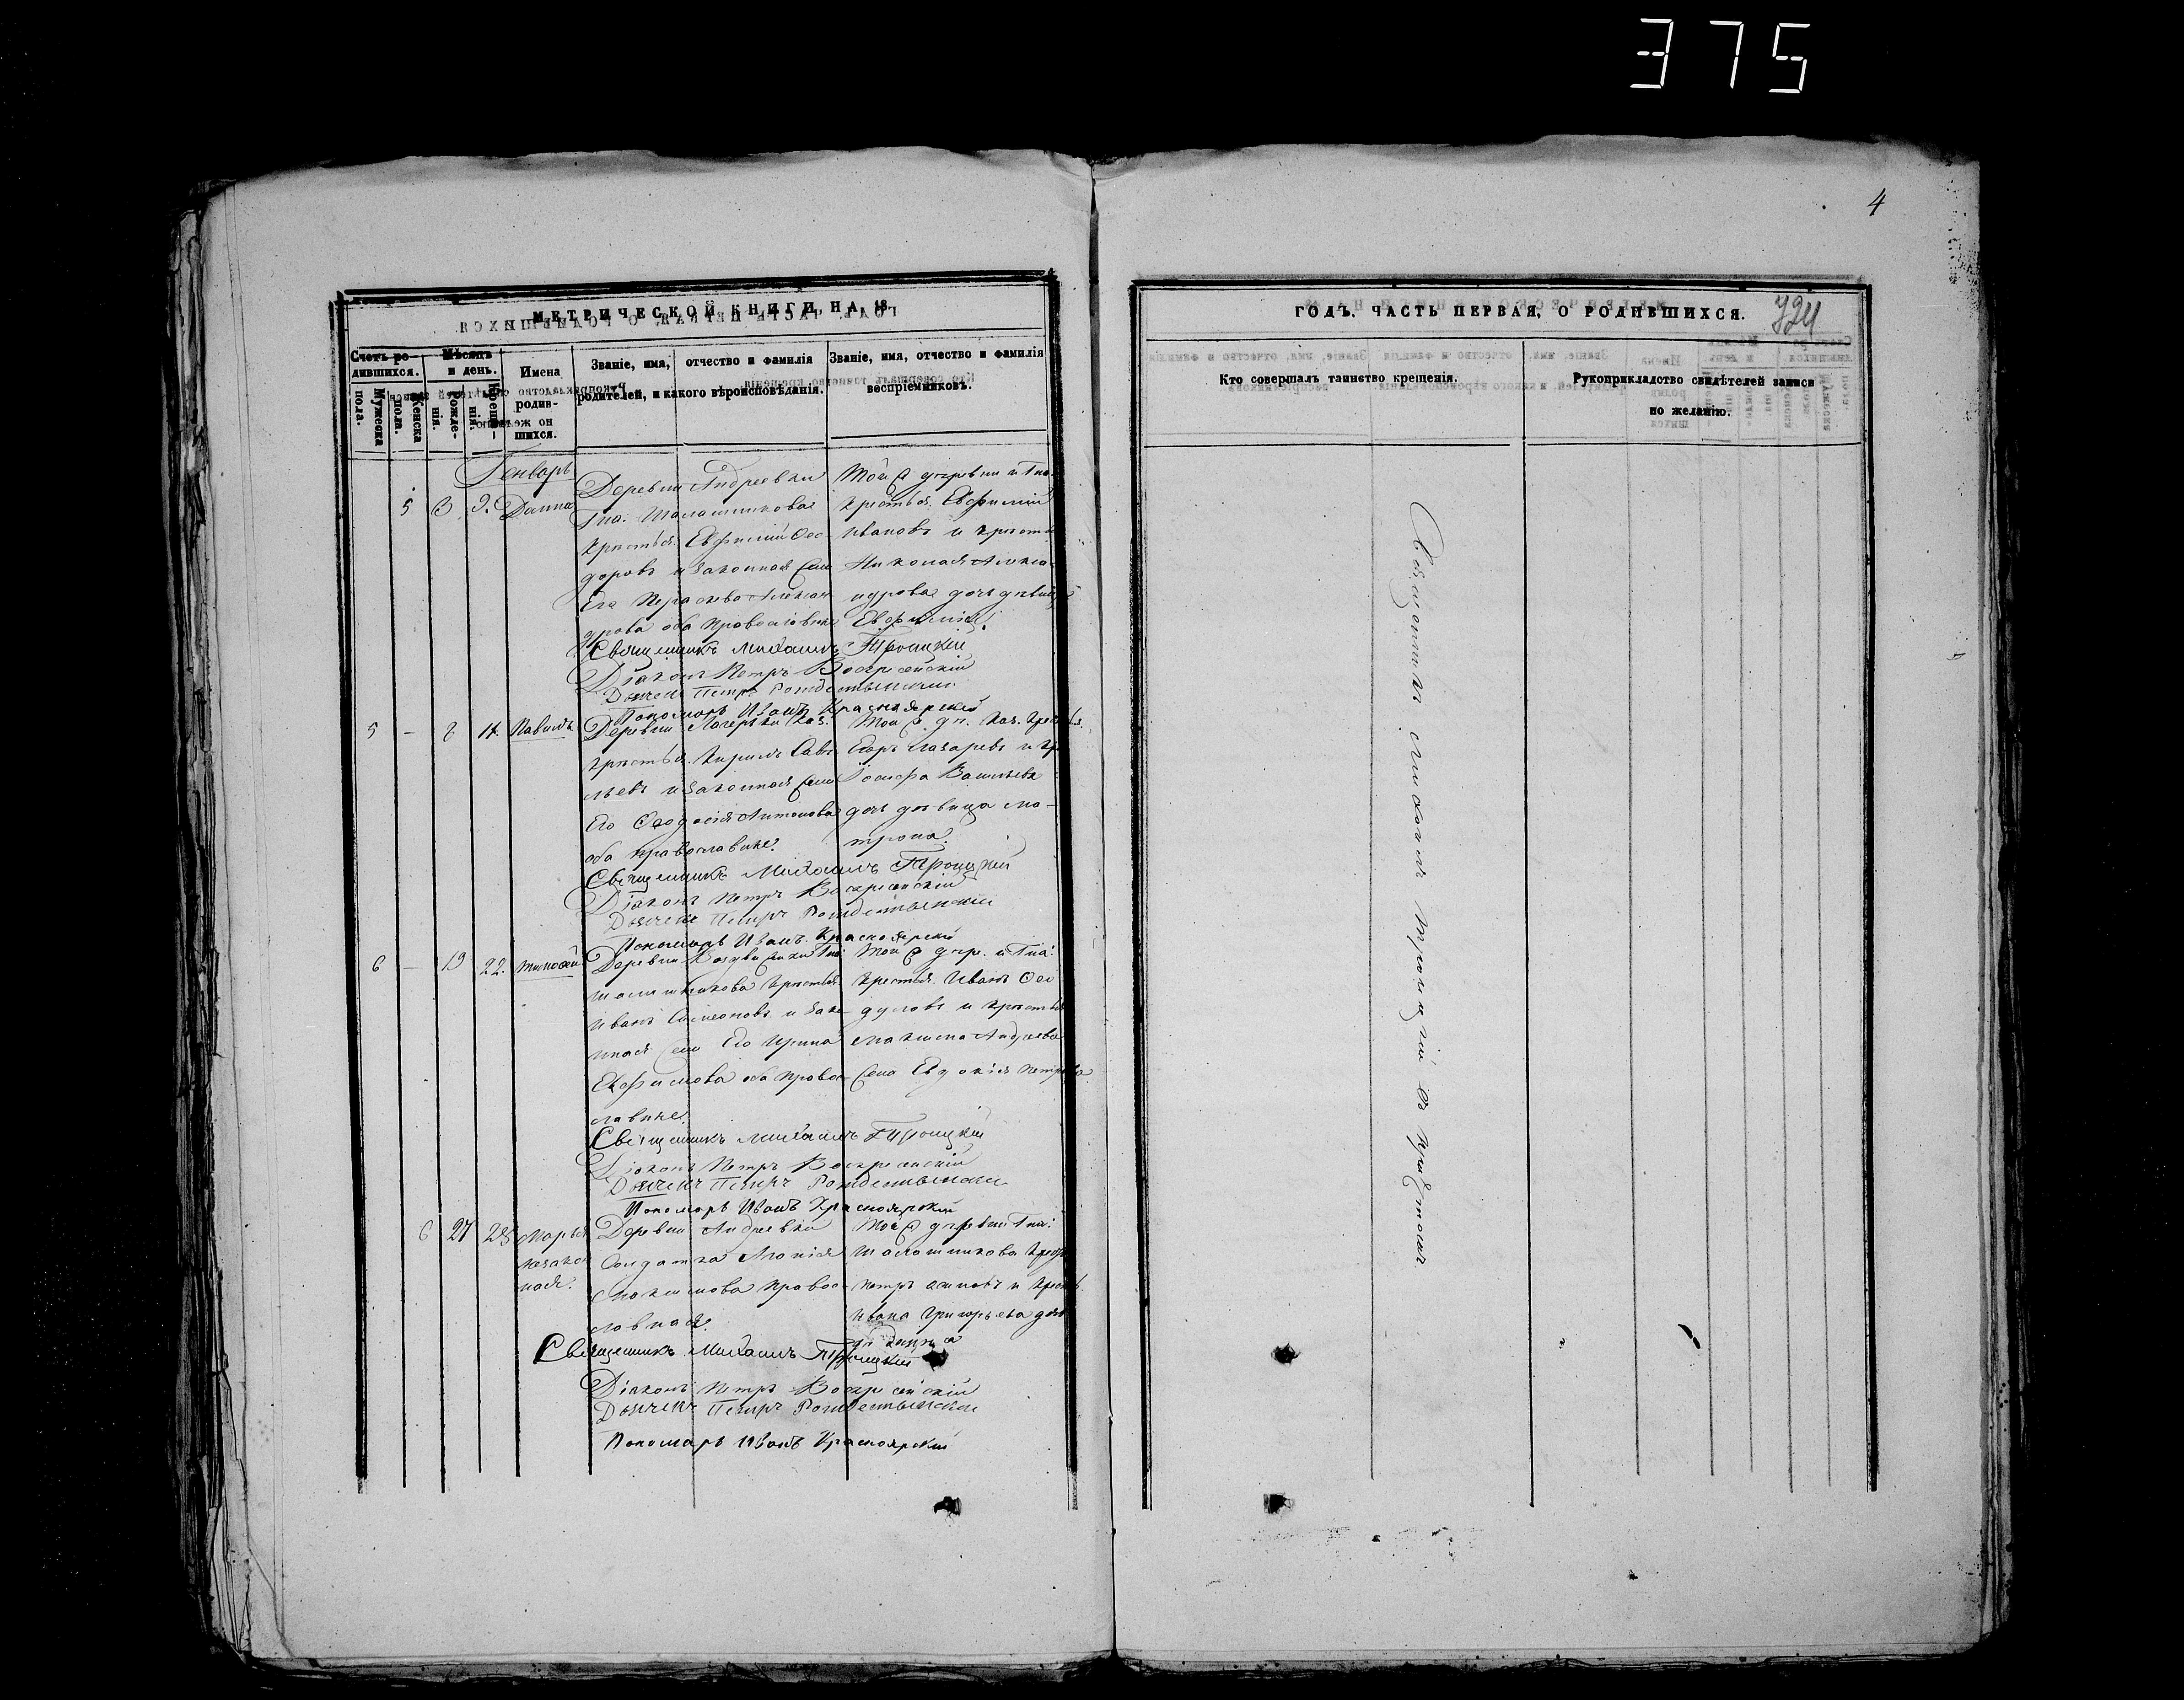 375
4
МЕТРИЧЕСКОЙ КНИГИ НА 18
Счетъ ро-
дившихся.
Мужеска пола.
Женска пола.
Мѣсяцъ
и день.
Рожде-
нія.
Креще-
нія.
Имена
родив-
шихся.
Званіе, имя, отчество и фамилія
родителей, и какого вѣроисповѣданія.
Званіе, имя, отчество и фамилія
воспріемниковъ.
Генварь
5 3 9. Домна
Деревни Андреевки
Гна. Шалашникова
крестья. Евфимій Ѳео
доровъ и законная жена
Его Параскева Алексан
дрова оба православные
Той же деревни и Гна.
крестья. Евфимій
Ивановъ и крестья
Николая Алекса
ндрова дочь дѣвица
Евфимія.
Священникъ Михаилъ Троицкій
Діаконъ Петръ Воскресенскій
Дьячекъ Петръ Рождественскій
Пономарь Иванъ Красноярскій
5 — 8 14. Павилъ
Деревни каз.
крестья. Кирилъ Саве
льевъ и законная жена
Его Ѳеодосія Антонова
оба православные.
Той же де. каз. крестья.
Егоръ Лазаревъ и кр.
Іосифа Васильева
дочь дѣвица Ма-
трона.
Священникъ Михаилъ Троицкій
Діаконъ Петръ Воскресенскій
Дьячекъ Петръ Рождественскій
Пономарь Иванъ Красноярскій
6 — 19 22. Тимофей
Деревни Гна:
Шалашникова крестья.
Иванъ Симеоновъ и зако-
нная жена Его Ирина
Евфимова оба право-
славные.
Той же дер. и Гна:
крестья. Иванъ Ѳео
дуловъ и крестья
Максима Андреева
жена Евдокія Петрова
Священникъ Михаилъ Троицкій
Діаконъ Петръ Воскресенскій
Дьячекъ Петръ Рождественскій
Пономарь Иванъ Красноярскій
6 27 28 Марья
незакон
ная.
Деревни Андреевки
Солдатка
Максимова право-
славная.
Той же деревни Гна:
Шалашникова крест
Петръ Осиповъ и крестья
Ивана Григорьева дочь
дѣвица
Священникъ Михаилъ Троицкій
Діаконъ Петръ Воскресенскій
Дьячекъ Петръ Рождественскій
Пономарь Иванъ Красноярскій
ГОДЪ. ЧАСТЬ ПЕРВАЯ, О РОДИВШИХСЯ.
724
Кто совершалъ таинство крещенія.
Рукоприкладство свидѣтелей записи
по желанію.
Священникъ Михаилъ Троицкій съ причтомъ